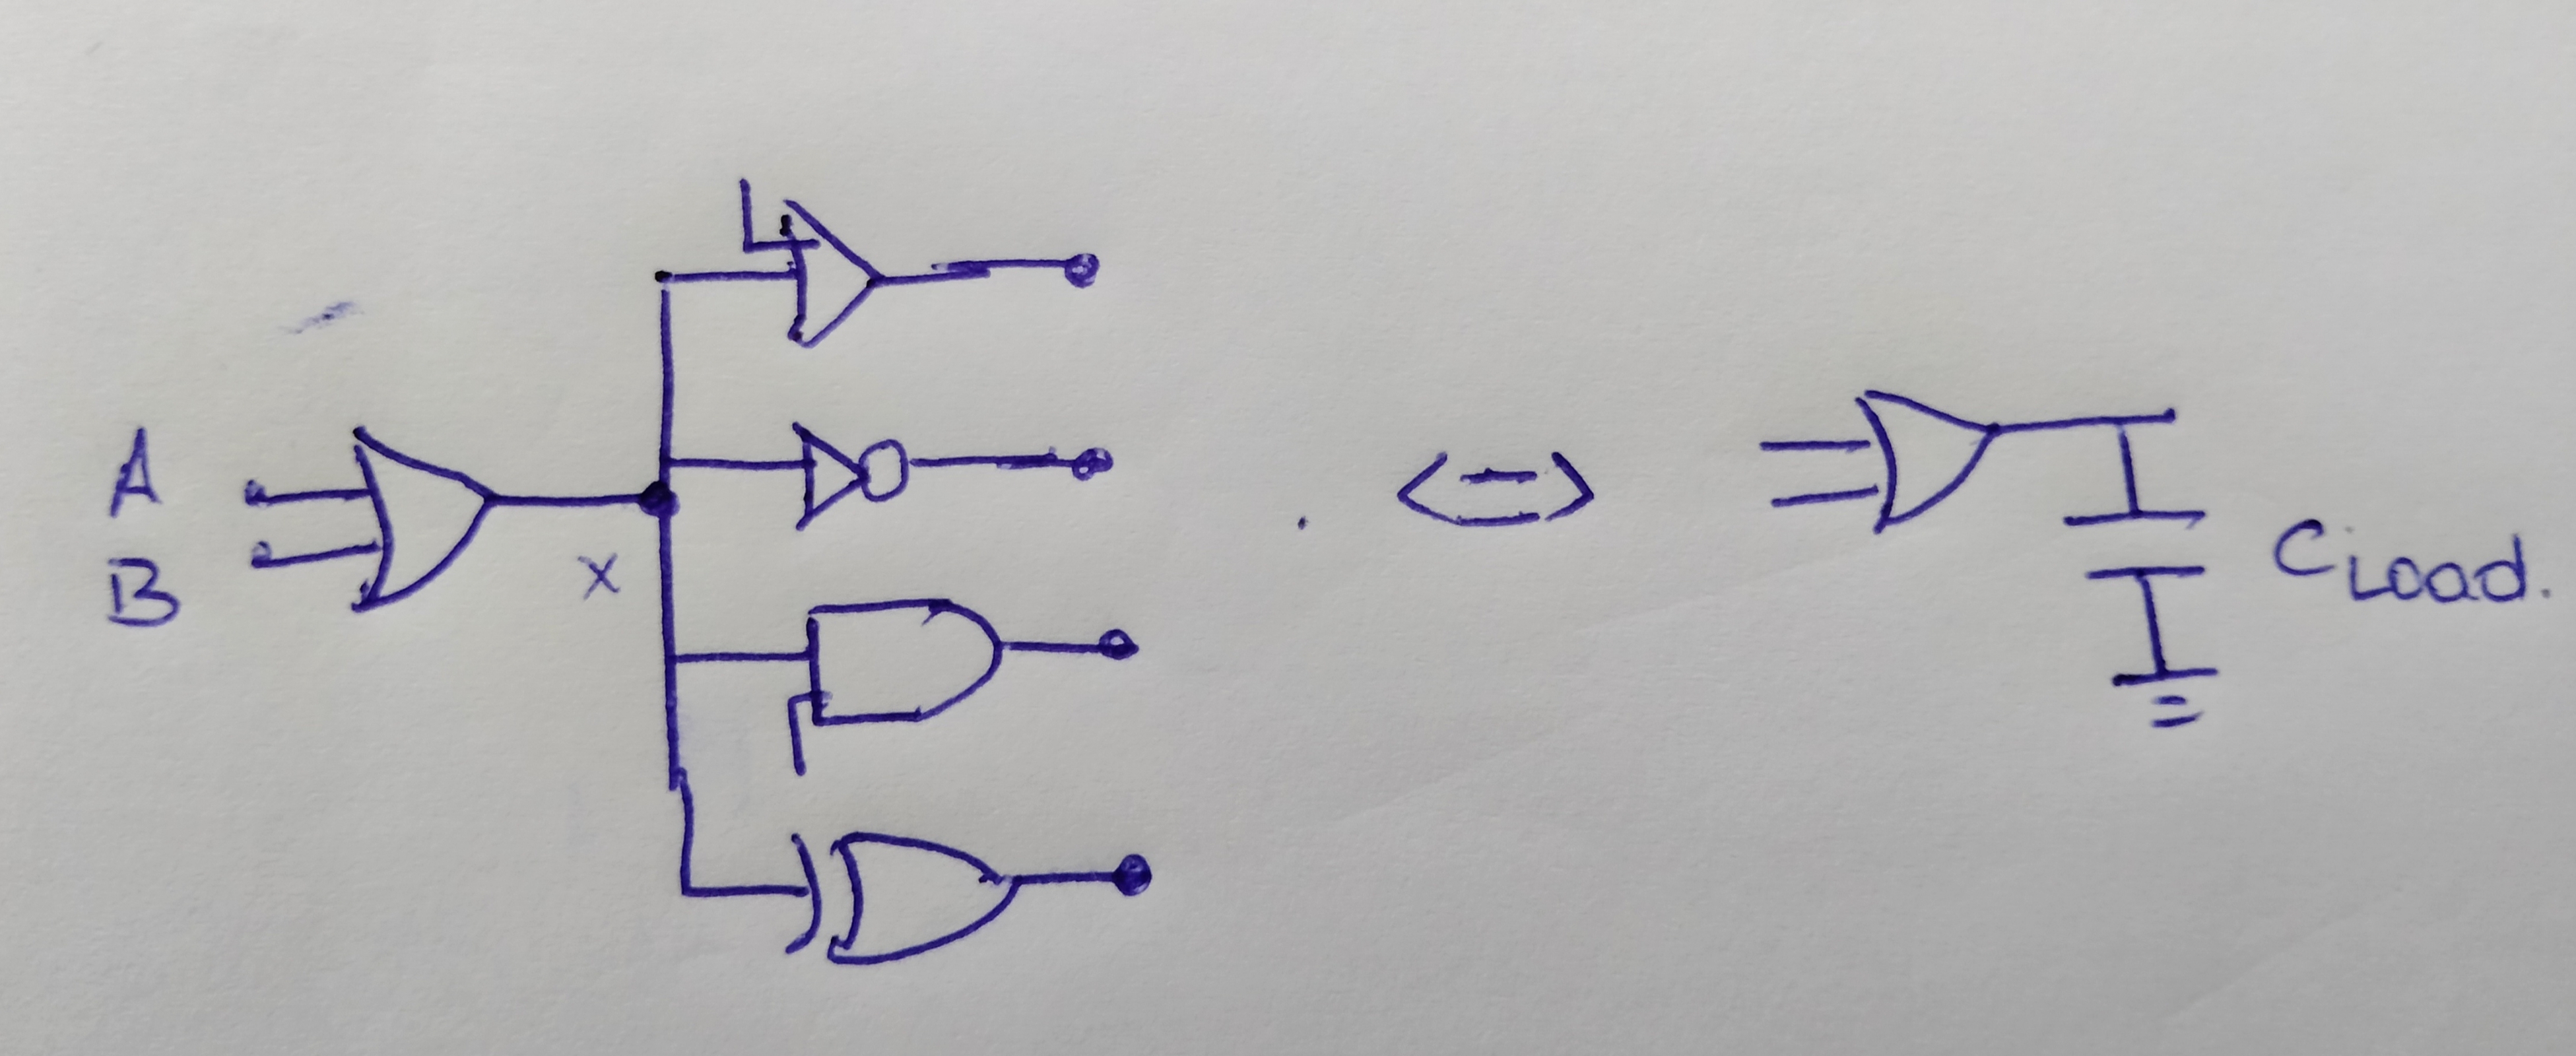 A
B
x
<=>
CLoad.